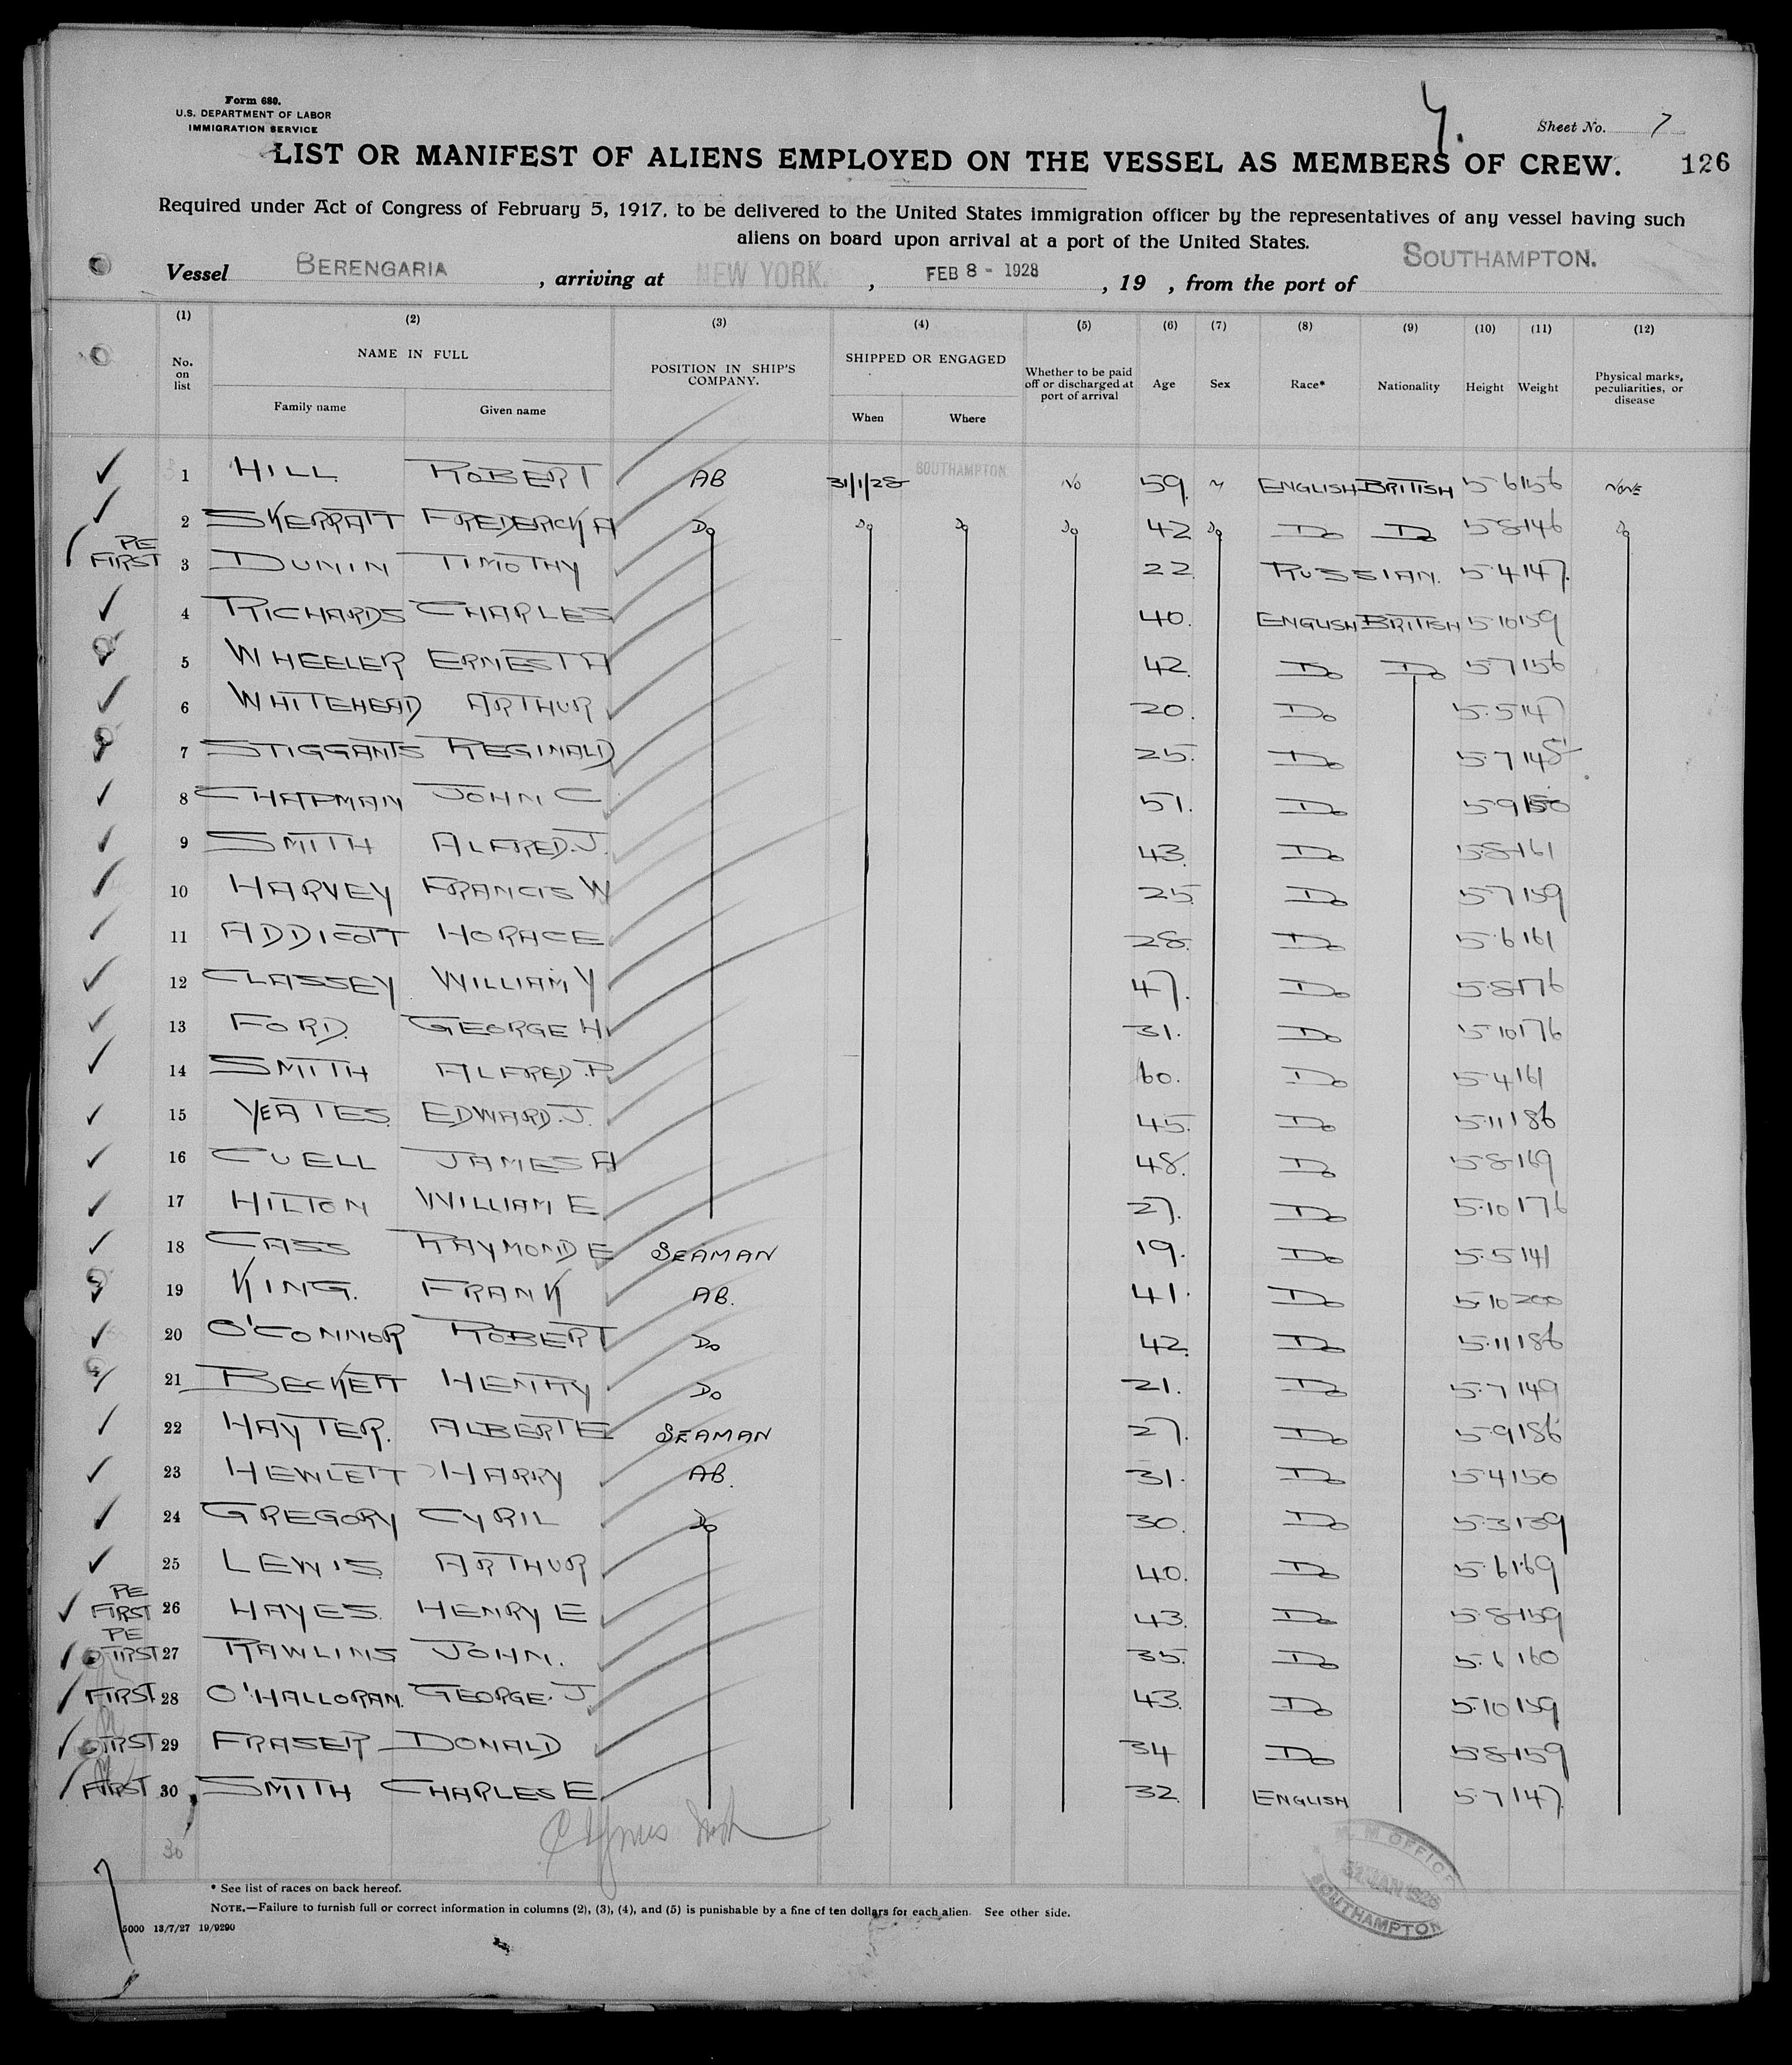 Form 680.
U.S. DEPARTMENT OF LABOR
IMMIGRATION SERVICE
Sheet No. 7
LIST OR MANIFEST OF ALIENS EMPLOYED ON THE VESSEL AS MEMBERS OF CREW. 126
Required under Act of Congress of February 5, 1917, to be delivered to the United States immigration officer by the representatives of any vessel having such
aliens on board upon arrival at a port of the United States.
Vessel BERENGARIA, arriving at NEW YORK., FEB 8 - 1928, 19 , from the port of SOUTHAMPTON.
(1) (2) (3) (4) (5) (6) (7) (8) (9) (10) (11) (12)
No. on list NAME IN FULL Family name Given name POSITION IN SHIP'S COMPANY. SHIPPED OR ENGAGED When Where Whether to be paid off or discharged at port of arrival Age Sex Race* Nationality Height Weight Physical marks, peculiarities, or disease
1 HILL ROBERT AB 31/1/28 SOUTHAMPTON No 59. M ENGLISH BRITISH 5 6 156 NONE
2 SKERRATT FREDERICK A Do Do Do Do 42 Do Do Do 5 8 146 Do
PE FIRST 3 DUNIN TIMOTHY 22 RUSSIAN. 5.4 147.
4 RICHARDS CHARLES 40. ENGLISH BRITISH 5.10 159
5 WHEELER ERNEST A 42. Do Do 5.7 156
6 WHITEHEAD ARTHUR 20. Do 5.5 147
7 STIGGANTS REGINALD 25. Do 5.7 148
8 CHAPMAN JOHN C 51. Do 5.9 150
9 SMITH ALFRED.J. 43. Do 5.8 161
10 HARVEY FRANCIS W 25 Do 5.7 159
11 ADDICOTT HORACE 28. Do 5.6 161
12 CLASSEY WILLIAM Y 47. Do 5.8 176
13 FORD. GEORGE H. 31. Do 5.10 176
14 SMITH ALFRED.P 60. Do 5.4 161
15 YEATES EDWARD.J. 45. Do 5.11 186
16 CUELL JAMES A 48. Do 5.8 169
17 HILTON WILLIAM E 27. Do 5.10 176
18 CASS RAYMOND E SEAMAN 19. Do 5.5 141
19 KING. FRANK AB. 41. Do 5.10 200
20 O'CONNOR ROBERT Do 42. Do 5.11 186
21 BECKETT HENRY Do 21. Do 5.7 149
22 HAYTER. ALBERT E SEAMAN 27. Do 5.9 186
23 HEWLETT HARRY AB. 31. Do 5.4 150
24 GREGORY CYRIL Do 30. Do 5.3 139
25 LEWIS ARTHUR 40. Do 5.6 169
PE FIRST 26 HAYES HENRY E 43. Do 5.8 159
PE FIRST 27 RAWLINS JOHN. 35. Do 5.6 160
FIRST. 28 O'HALLORAN. GEORGE.J. 43. Do 5.10 159
FIRST 29 FRASER DONALD 34 Do 5.8 159
FIRST 30 SMITH CHARLES E 32. ENGLISH 5.7 147.
30
OFFICE
31 JAN 1928
SOUTHAMPTON
* See list of races on back hereof.
NOTE.—Failure to furnish full or correct information in columns (2), (3), (4), and (5) is punishable by a fine of ten dollars for each alien. See other side.
5000 13/7/27 19/9290